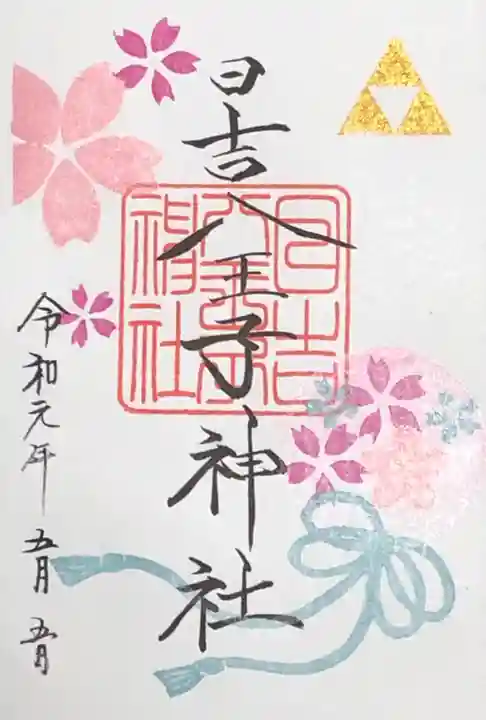 日吉八王子神社
日吉
八王子
神社
令和元年 五月 五日